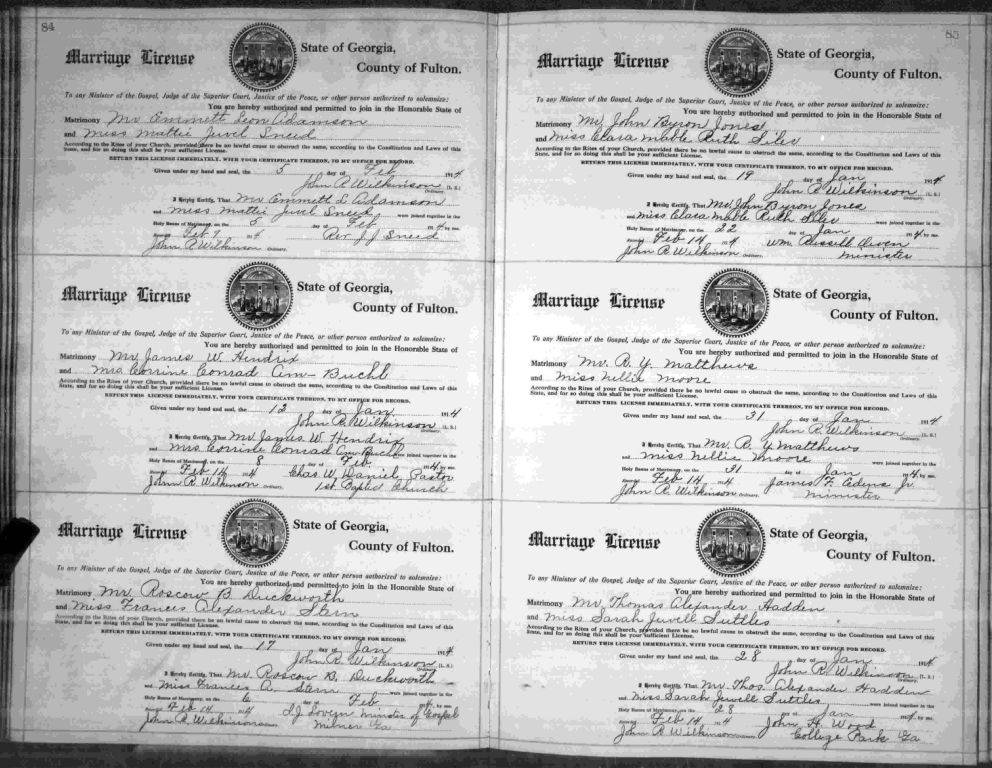 84
Marriage License
State of Georgia,
County of Fulton.
To any Minister of the Gospel, Judge of the Superior Court, Justice of the Peace, or other person authorized to solemnize:
You are hereby authorized and permitted to join in the Honorable State of
Matrimony Mr Emmett Leon Adamson
and Miss Mattie Juvel Sneed
According to the Rites of your Church, provided there be no lawful cause to obstruct the same, according to the Constitution and Laws of this
State, and for so doing this shall be your sufficient License.
RETURN THIS LICENSE IMMEDIATELY, WITH YOUR CERTIFICATE THEREON, TO MY OFFICE FOR RECORD.
Given under my hand and seal, the 5 day of Feb 1914
John R. Wilkinson (L. S.)
Ordinary.
I Hereby Certify, That Mr Emmett L Adamson
and Miss Mattie Juvel Sneed were joined together in the
Holy Bonds of Matrimony, on the 5 day of Feb 1914 by me.
Feb 7 1914 Rev J J Sneed
John R Wilkinson Ordinary.
Marriage License
State of Georgia,
County of Fulton.
To any Minister of the Gospel, Judge of the Superior Court, Justice of the Peace, or other person authorized to solemnize:
You are hereby authorized and permitted to join in the Honorable State of
Matrimony Mr James W. Hendrix
and Mrs Corrine Conrad Am- Buchl
According to the Rites of your Church, provided there be no lawful cause to obstruct the same, according to the Constitution and Laws of this
State, and for so doing this shall be your sufficient License.
RETURN THIS LICENSE IMMEDIATELY, WITH YOUR CERTIFICATE THEREON, TO MY OFFICE FOR RECORD.
Given under my hand and seal, the 12 day of Jan. 1914
John R. Wilkinson (L. S.)
Ordinary.
I Hereby Certify, That Mr James W. Hendrix
and Mrs Corrine Conrad Am Buchl were joined together in the
Holy Bonds of Matrimony, on the 8 day of Feb. 1914 by me.
Feb 14 1914 Chas W. Daniel, Pastor
John R. Wilkinson Ordinary. 1st Baptist Church
Marriage License
State of Georgia,
County of Fulton.
To any Minister of the Gospel, Judge of the Superior Court, Justice of the Peace, or other person authorized to solemnize:
You are hereby authorized and permitted to join in the Honorable State of
Matrimony Mr. Roscow B. Duckworth
and Miss Frances Alexander Stern
According to the Rites of your Church, provided there be no lawful cause to obstruct the same, according to the Constitution and Laws of this
State, and for so doing this shall be your sufficient License.
RETURN THIS LICENSE IMMEDIATELY, WITH YOUR CERTIFICATE THEREON, TO MY OFFICE FOR RECORD.
Given under my hand and seal, the 17 day of Jan 1914
John R. Wilkinson (L. S.)
Ordinary.
I Hereby Certify, That Mr. Roscow B. Duckworth
and Miss Frances A. were joined together in the
Holy Bonds of Matrimony, on the 6 day of Feb 1914 by me.
Feb 14 1914 Minister of Gospel
John R. Wilkinson Ordinary. Milner Ga
85
Marriage License
State of Georgia,
County of Fulton.
To any Minister of the Gospel, Judge of the Superior Court, Justice of the Peace, or other person authorized to solemnize:
You are hereby authorized and permitted to join in the Honorable State of
Matrimony Mr John Byron Jones
and Miss Clara Mable Ruth Siler
According to the Rites of your Church, provided there be no lawful cause to obstruct the same, according to the Constitution and Laws of this
State, and for so doing this shall be your sufficient License.
RETURN THIS LICENSE IMMEDIATELY, WITH YOUR CERTIFICATE THEREON, TO MY OFFICE FOR RECORD.
Given under my hand and seal, the 19 day of Jan 1914
John R. Wilkinson (L. S.)
Ordinary.
I Hereby Certify, That Mr. John Byron Jones
and Miss Clara Mable Ruth Siler were joined together in the
Holy Bonds of Matrimony, on the 22 day of Jan 1914 by me.
Feb 14 1914 Wm. Russell Owen
John R. Wilkinson Ordinary. Minister
Marriage License
State of Georgia,
County of Fulton.
To any Minister of the Gospel, Judge of the Superior Court, Justice of the Peace, or other person authorized to solemnize:
You are hereby authorized and permitted to join in the Honorable State of
Matrimony Mr. R. Y. Matthews
and Miss Nellie Moore
According to the Rites of your Church, provided there be no lawful cause to obstruct the same, according to the Constitution and Laws of this
State, and for so doing this shall be your sufficient License.
RETURN THIS LICENSE IMMEDIATELY, WITH YOUR CERTIFICATE THEREON, TO MY OFFICE FOR RECORD.
Given under my hand and seal, the 31 day of Jan 1914
John R. Wilkinson (L. S.)
Ordinary.
I Hereby Certify, That Mr. R. Y. Matthews
and Miss Nellie Moore were joined together in the
Holy Bonds of Matrimony, on the 31 day of Jan 1914 by me.
Feb 14 1914 James F. Edens Jr.
John R. Wilkinson Ordinary. Minister
Marriage License
State of Georgia,
County of Fulton.
To any Minister of the Gospel, Judge of the Superior Court, Justice of the Peace, or other person authorized to solemnize:
You are hereby authorized and permitted to join in the Honorable State of
Matrimony Mr. Thomas Alexander Hadden
and Miss Sarah Jewell Suttles
According to the Rites of your Church, provided there be no lawful cause to obstruct the same, according to the Constitution and Laws of this
State, and for so doing this shall be your sufficient License.
RETURN THIS LICENSE IMMEDIATELY, WITH YOUR CERTIFICATE THEREON, TO MY OFFICE FOR RECORD.
Given under my hand and seal, the 28 day of Jan 1914
John R. Wilkinson (L. S.)
Ordinary.
I Hereby Certify, That Mr. Thos. Alexander Hadden
and Miss Sarah Jewell Suttles were joined together in the
Holy Bonds of Matrimony, on the 28 day of Jan 1914 by me.
Feb 14 1914 John H. Wood
John R. Wilkinson Ordinary. College Park Ga